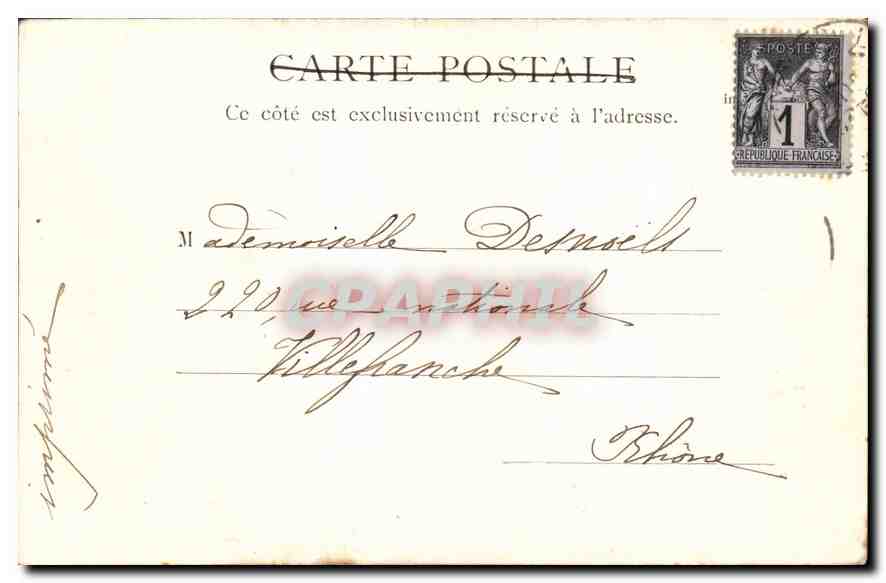 CARTE POSTALE
Ce côté est exclusivement réservé à l'adresse.
POSTE
1
REPUBLIQUE FRANÇAISE
Mademoiselle Desnoëls
220, rue nationale
Villefranche
Rhône
imprimé
GRAPHIL